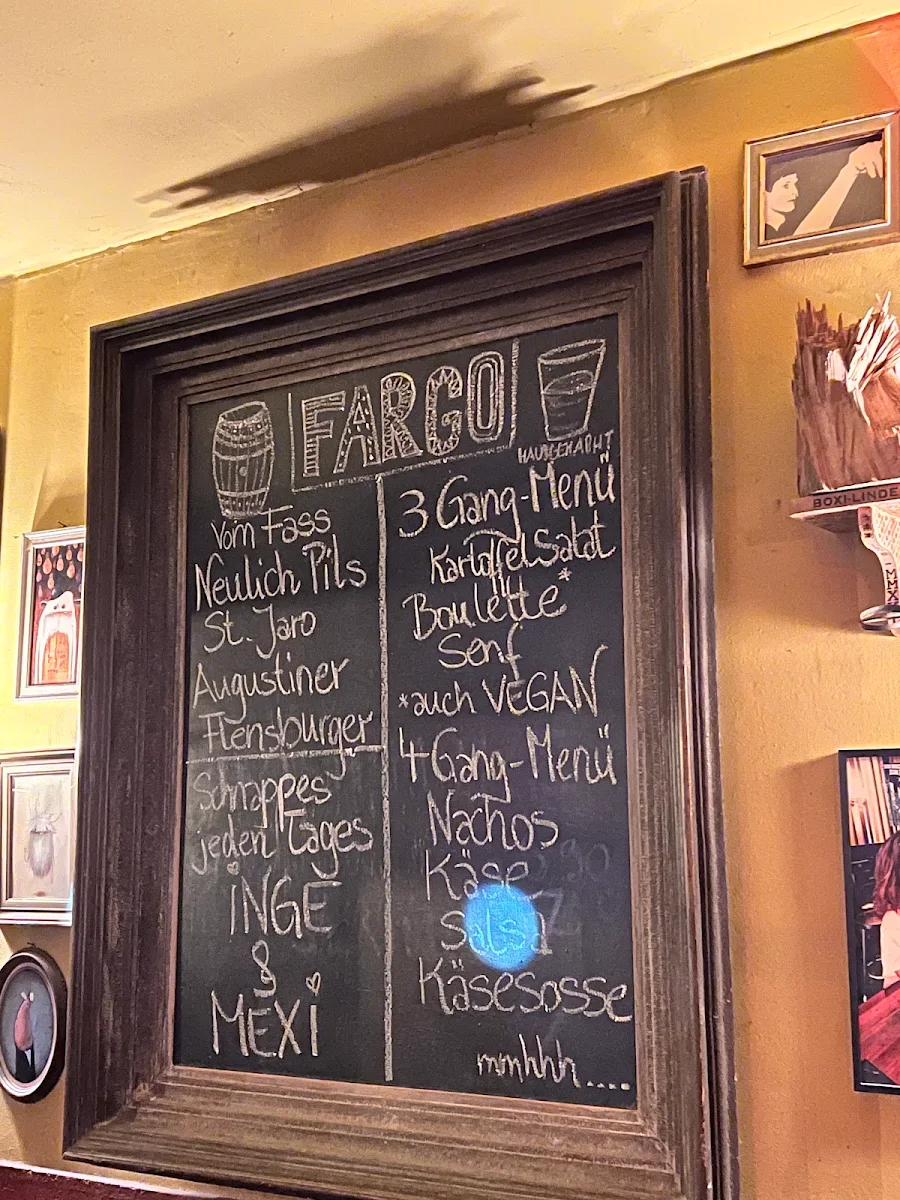 FARGO
Vom Fass
Neulich Pils
St. Jaro
Augustiner
Flensburger
Schnappes
jeden Tages
INGE
&
MEXI
HAUSGEMACHT
3 Gang-Menü
Kartoffelsalat
Boulette*
Senf
*auch VEGAN
4 Gang-Menü
Nachos
Käse
Salsa
Käsesosse
mmhhh....